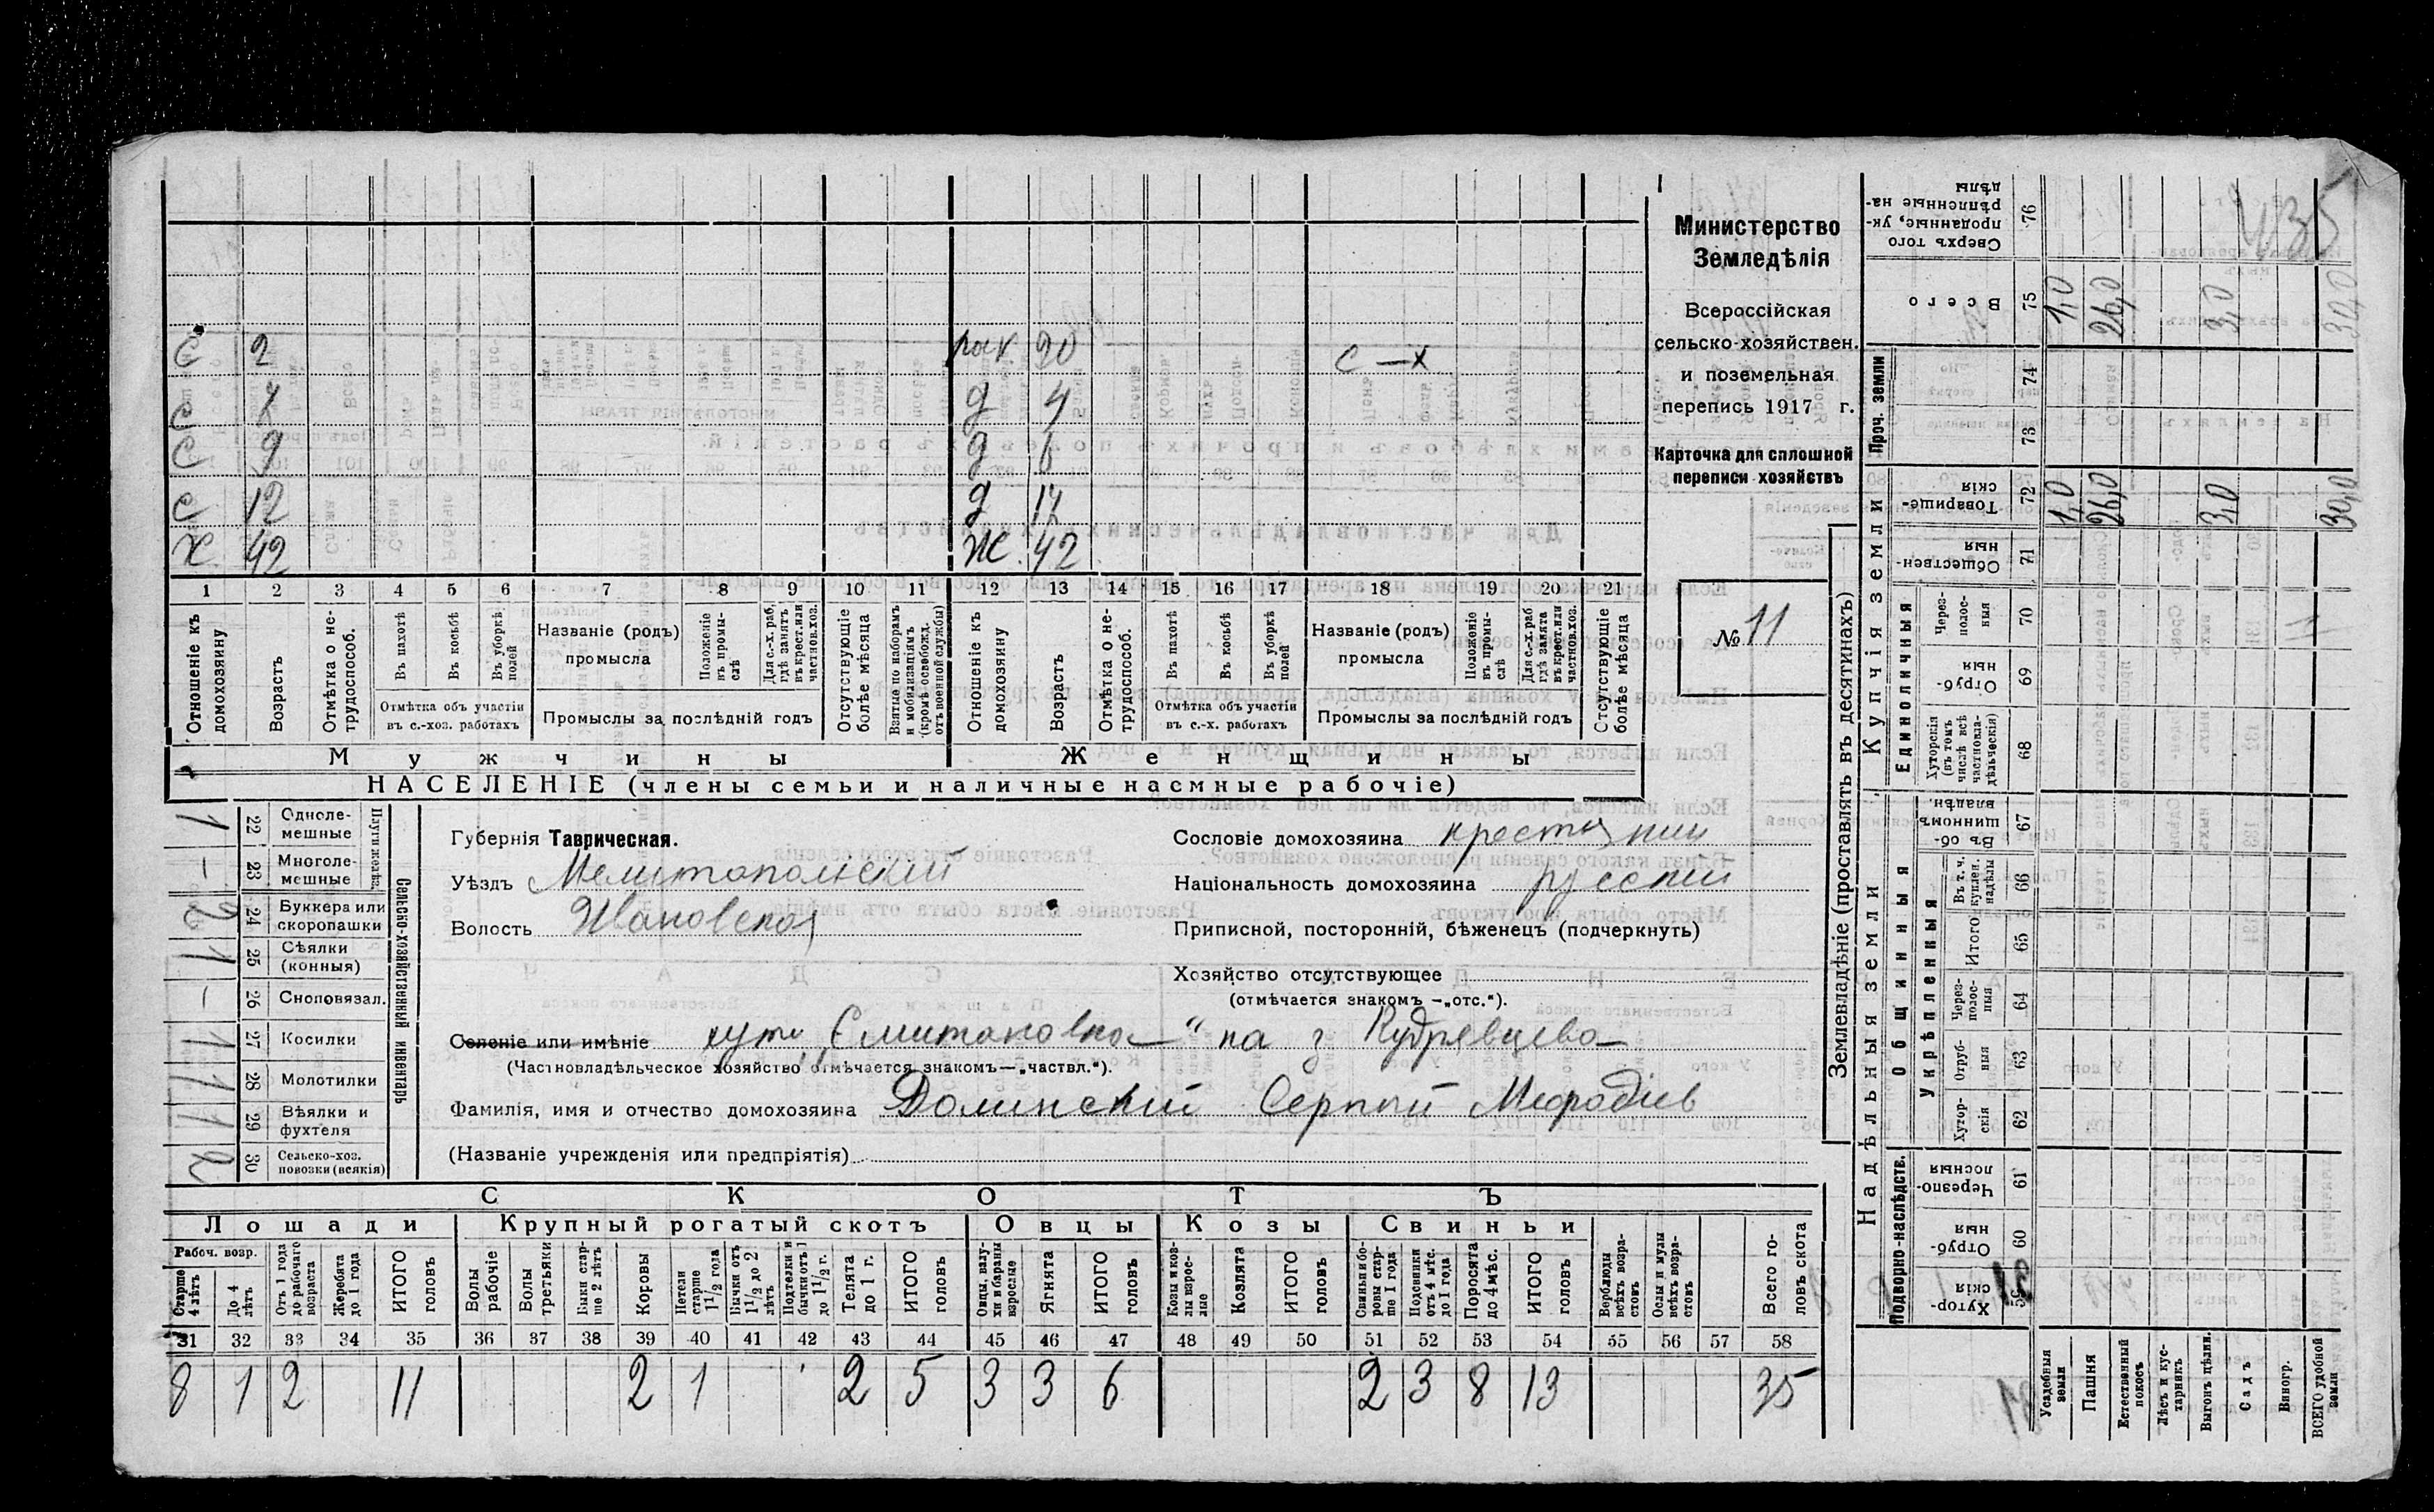 с 2 раб 20 с-х
с 7 д 4
с 9 д 6
с 12 д 14
х 42 ж 42
1 2 3 4 5 6 7 8 9 10 11 12 13 14 15 16 17 18 19 20 21
Отношеніе къ домохозяину
Возрастъ
Отмѣтка о не-трудоспособ.
Въ пахотѣ
Въ косьбѣ
Въ уборкѣ полей
Отмѣтка объ участіи въ с.-хоз. работахъ
Названіе (родъ) промысла
Положеніе въ промы-слѣ
Для с.-х. раб. гдѣ занятъ въ крест. или частнов. хоз.
Промыслы за послѣдній годъ
Отсутствующіе болѣе мѣсяца
Взятые по наборамъ и мобилизаціямъ (кромѣ освобожд. отъ военной службы)
Отношеніе къ домохозяину
Возрастъ
Отмѣтка о не-трудоспособ.
Въ пахотѣ
Въ косьбѣ
Въ уборкѣ полей
Отмѣтка объ участіи въ с.-х. работахъ
Названіе (родъ) промысла
Положеніе въ промы-слѣ
Для с.-х. раб. гдѣ занята въ крест. или частнов. хоз.
Промыслы за послѣдній годъ
Отсутствующіе болѣе мѣсяца
Мужчины Женщины
НАСЕЛЕНІЕ (члены семьи и наличные наемные рабочіе)
Министерство
Земледѣлія
Всероссійская
сельско-хозяйствен.
и поземельная
перепись 1917 г.
Карточка для сплошной
переписи хозяйствъ
№ 11
Сельско-хозяйственный инвентарь
1 22 Одноле-мешные
– 23 Многоле-мешные
2 24 Буккера или скоропашки
1 25 Сѣялки (конныя)
– 26 Сноповязал.
1 27 Косилки
1 28 Молотилки
1 29 Вѣялки и фухтеля
2 30 Сельско-хоз. повозки (всякія)
Губернія Таврическая.
Уѣздъ Мелитопольскій
Волость Ивановская
Сословіе домохозяина крестьянин
Національность домохозяина русскій
Приписной, посторонній, бѣженецъ (подчеркнуть)
Хозяйство отсутствующее
(отмѣчается знакомъ —„отс.“).
Селеніе или имѣніе хут. „Смитановка“ на з Кудрявцева
(Частновладѣльческое хозяйство отмѣчается знакомъ—„частвл.“).
Фамилія, имя и отчество домохозяина Долинскій Сергей Мефодіев
(Названіе учрежденія или предпріятія)
СКОТЪ
Лошади Крупный рогатый скотъ Овцы Козы Свиньи
Рабоч. возр.
Старше 4 лѣтъ
До 4 лѣтъ
Отъ 1 года до рабочаго возраста
Жеребята до 1 года
ИТОГО головъ
Волы рабочіе
Волы третьяки
Быки стар-ше 2 лѣтъ
Коровы
Нетели старше 1½ года
Бычки отъ 1½ до 2 лѣтъ
Подтелки и бычки отъ 1 до 1½ г.
Телята до 1 г.
ИТОГО головъ
Овцы, валу-хи и бараны взрослые
Ягнята
ИТОГО головъ
Козы и коз-лы взрос-лые
Козлята
ИТОГО головъ
Свиньи и бо-ровы стар-ше 1 года
Подсвинки отъ 4 мѣс. до 1 года
Поросята до 4 мѣс.
ИТОГО головъ
Верблюды всѣхъ возра-стовъ
Ослы и мулы всѣхъ возра-стовъ
Всего го-ловъ скота
31 32 33 34 35 36 37 38 39 40 41 42 43 44 45 46 47 48 49 50 51 52 53 54 55 56 57 58
8 1 2 11 2 1 2 5 3 3 6 2 3 8 13 35
Землевладѣніе (проставлять въ десятинахъ)
Сверхъ того проданные, ук-рѣпленные на-дѣлы 76
Всего 75 1,0 26,0 3,0 30,0
435
Проч. земли 74 73
Купчія земли
Товарище-скія 72 1,0 26,0 3,0 30,0
Обществен-ныя 71
Единоличныя
Через-полос-ныя 70
Отруб-ныя 69
Хуторскія (въ томъ числѣ всѣ частновла-дѣльческія) 68
Надѣльныя земли
Общинныя
Въ об-щинномъ владѣн. 67
Укрѣпленныя
Въ т. ч. куплен. надѣлы 66
Итого 65
Через-полос-ныя 64
Отруб-ныя 63
Хутор-скія 62
Подворно-наслѣдств.
Черезпо-лосныя 61
Отруб-ныя 60
Хутор-скія 59
Усадебныя земли
Пашня
Естественный покосъ
Лѣсъ и кус-тарникъ
Выгонъ цѣлин.
Садъ
Виногр.
ВСЕГО удобной земли